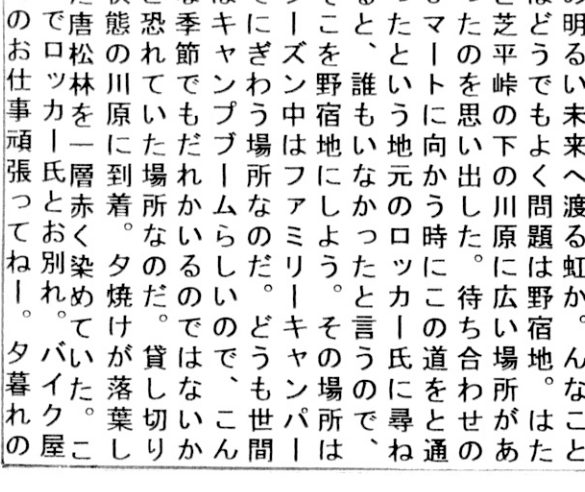 の明るい未来へ渡る虹か。んなこと
はどうでもよく問題は野宿地。はた
と芝平峠の下の川原に広い場所があ
ったのを思い出した。待ち合わせの
マートに向かう時にこの道をと通
ったという地元のロッカー氏に尋ね
ると、誰もいなかったと言うので、
そこを野宿地にしよう。その場所は
ーズン中はファミリーキャンパー
でにぎわう場所なのだ。どうも世間
はキャンプブームらしいので、こん
な季節でもだれかいるのではないか
と恐れていた場所なのだ。貸し切り
状態の川原に到着。夕焼けが落葉し
た唐松林を一層赤く染めていた。こ
でロッカー氏とお別れ。バイク屋
のお仕事頑張ってねー。夕暮れの